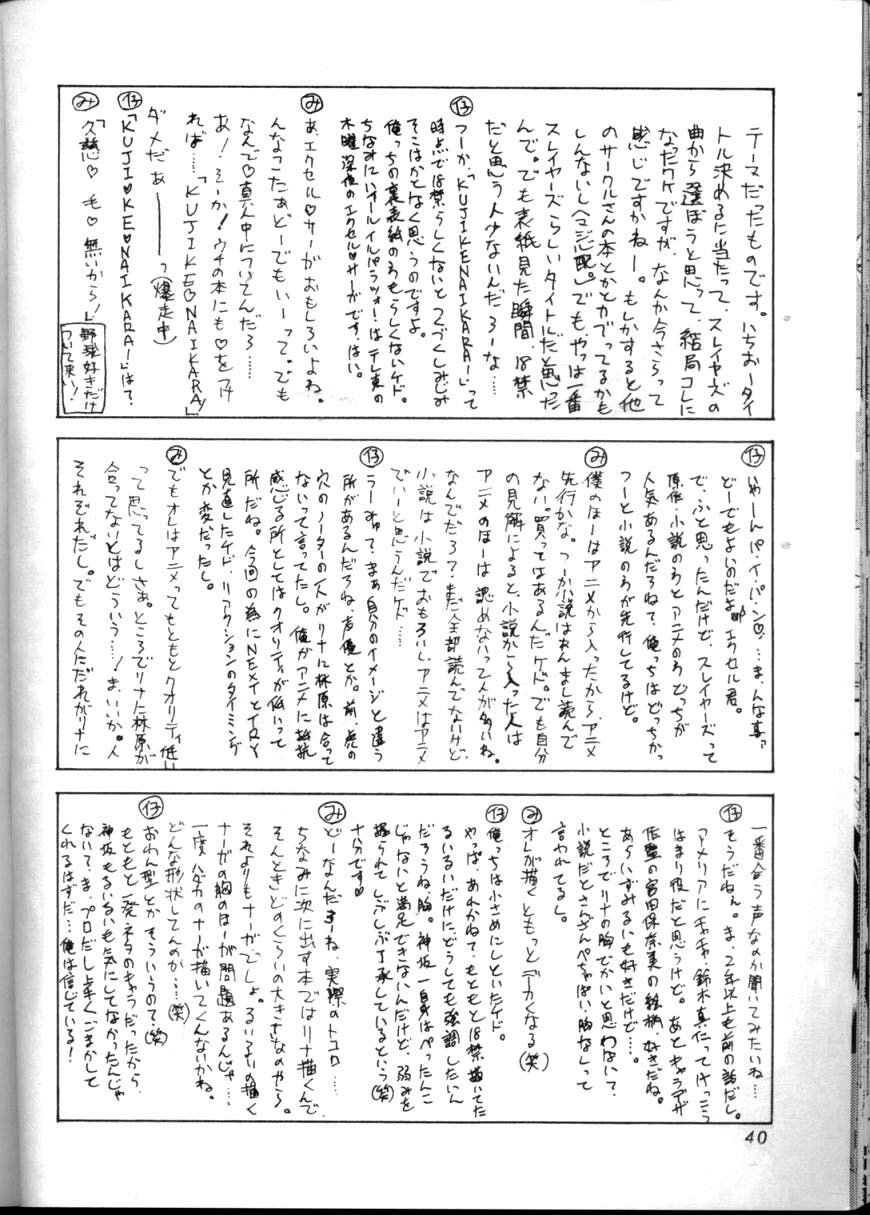 テーマだったものです。いちおータイ
トル決めるに当たって、スレイヤーズの
曲から選ぼうと思って、結局コレに
なったワケですが、なんか今さらって
感じですかねー。もしかすると他
のサークルさんの本とかとカブってるかも
しんないし(マジ心配。)でも、やっぱ一番
スレイヤーズらしいタイトルだと思った
んで。でも表紙見た瞬間、18禁
だと思う人少ないんだろーな……
仔 つーか、「KUJIKENAIKARA!」って
時点で18禁らしくないとつくづくしみじみ
そこはかとなく思うのですよ。
俺っちの裏表紙のわもらしくないケド。
ちなみにハオールイルパラッツォ!はテレ東の
木曜深夜のエクセル♡サーガです、はい。
み あ、エクセル♡サーガおもしろいよね。
んなこたぁどーでもいーって。でも
なんで♡真ん中についてんだろ……
あ!そーか!ウチの本にも♡をつけ
れば……「KUJIKE♡NAIKARA!」
ダメだぁーーーっ(爆走中)
仔 「KUJI♡KE♡NAIKARA!」は?
み 「久慈♡毛♡無いから!」
野球好きだけ
ついて来い!
仔 いやーんパ・イ・パン♡。…ま、んな事
どーでもよいのだよ エクセル君。
で、ふと思ったんだけど、スレイヤーズって
原作・小説のわとアニメのわどっちが
人気あるんだろねて、俺っちはどっちかっ
つーと小説のわが先行してるけど。
み 僕のほーはアニメから入ったから、アニメ
先行かな。つーか小説はあんまし読んで
ない。買ってはあるんだケド。でも自分
の見解によると、小説から入った人は
アニメのほーは認めないって人が多いね。
なんでだろ?まだ全部読んでないけど、
小説は小説でおもろいし、アニメはアニメ
でいーと思うんだケド……
仔 うーみゅ?まぁ自分のイメージと違う
所があるんだろね、声優とか。前、虎の
穴のノーターの人がリナに林原は合って
ないって言ってたし。俺がアニメに抵抗
感じる所としてはクオリティが低いって
所だね。今回の為にNEXTとTRY
見直したケド、リアクションのタイミング
とか変だったし。
み でもオレはアニメってもともとクオリティ低い
って思ってるしさぁ。ところでリナに林原が
合ってないとはどういう…!ま、いいか。人
それぞれだし。でもその人ただれがリナに
一番合う声なのか聞いてみたいね……
仔 そうだねぇ。ま、2年以上も前の話だし。
アメリアにチャチャ、鈴木真仁ってけっこう
はまり役だと思うけど。あとキャラデザ
作監の宮田保奈美の絵柄、好きだね。
あらいずみるいも好きだけど…。
ところでリナの胸でかいと思わない?
小説だとさんざんぺちゃぱい胸なしって
言われてるし。
み オレが描くともっとデカくなる(笑)
仔 俺っちは小さめにしといたケド。
やっぱ、あれかねて、もともと18禁描いてた
るいるいだけに、どうしても強調したいん
だろうね、胸。神坂一自身はぺったんこ
じゃないと満足できないんだけど、弱みを
握られてしぶしぶ了承しているという(笑)
十分です♡
み どーなんだろーね、実際のトコロ……
ちなみに次に出す本ではリナ描くんで、
そんときどのくらいの大きさなのやら。
それよりもナーガでしょ。るいるいの描く
ナーガの胸のほーが問題あるんじゃ……
一度ハダカのナーガ描いてくんないかね。
どんな形状してんのか……(笑)
仔 おわん型とかそういうので(笑)
もともと一発ネタのキャラだったから、
神坂もるいるいも気にしてなかったんじゃ
ないて、ま、プロだし上手くごまかして
くれるはずだ…俺は信じている!
40